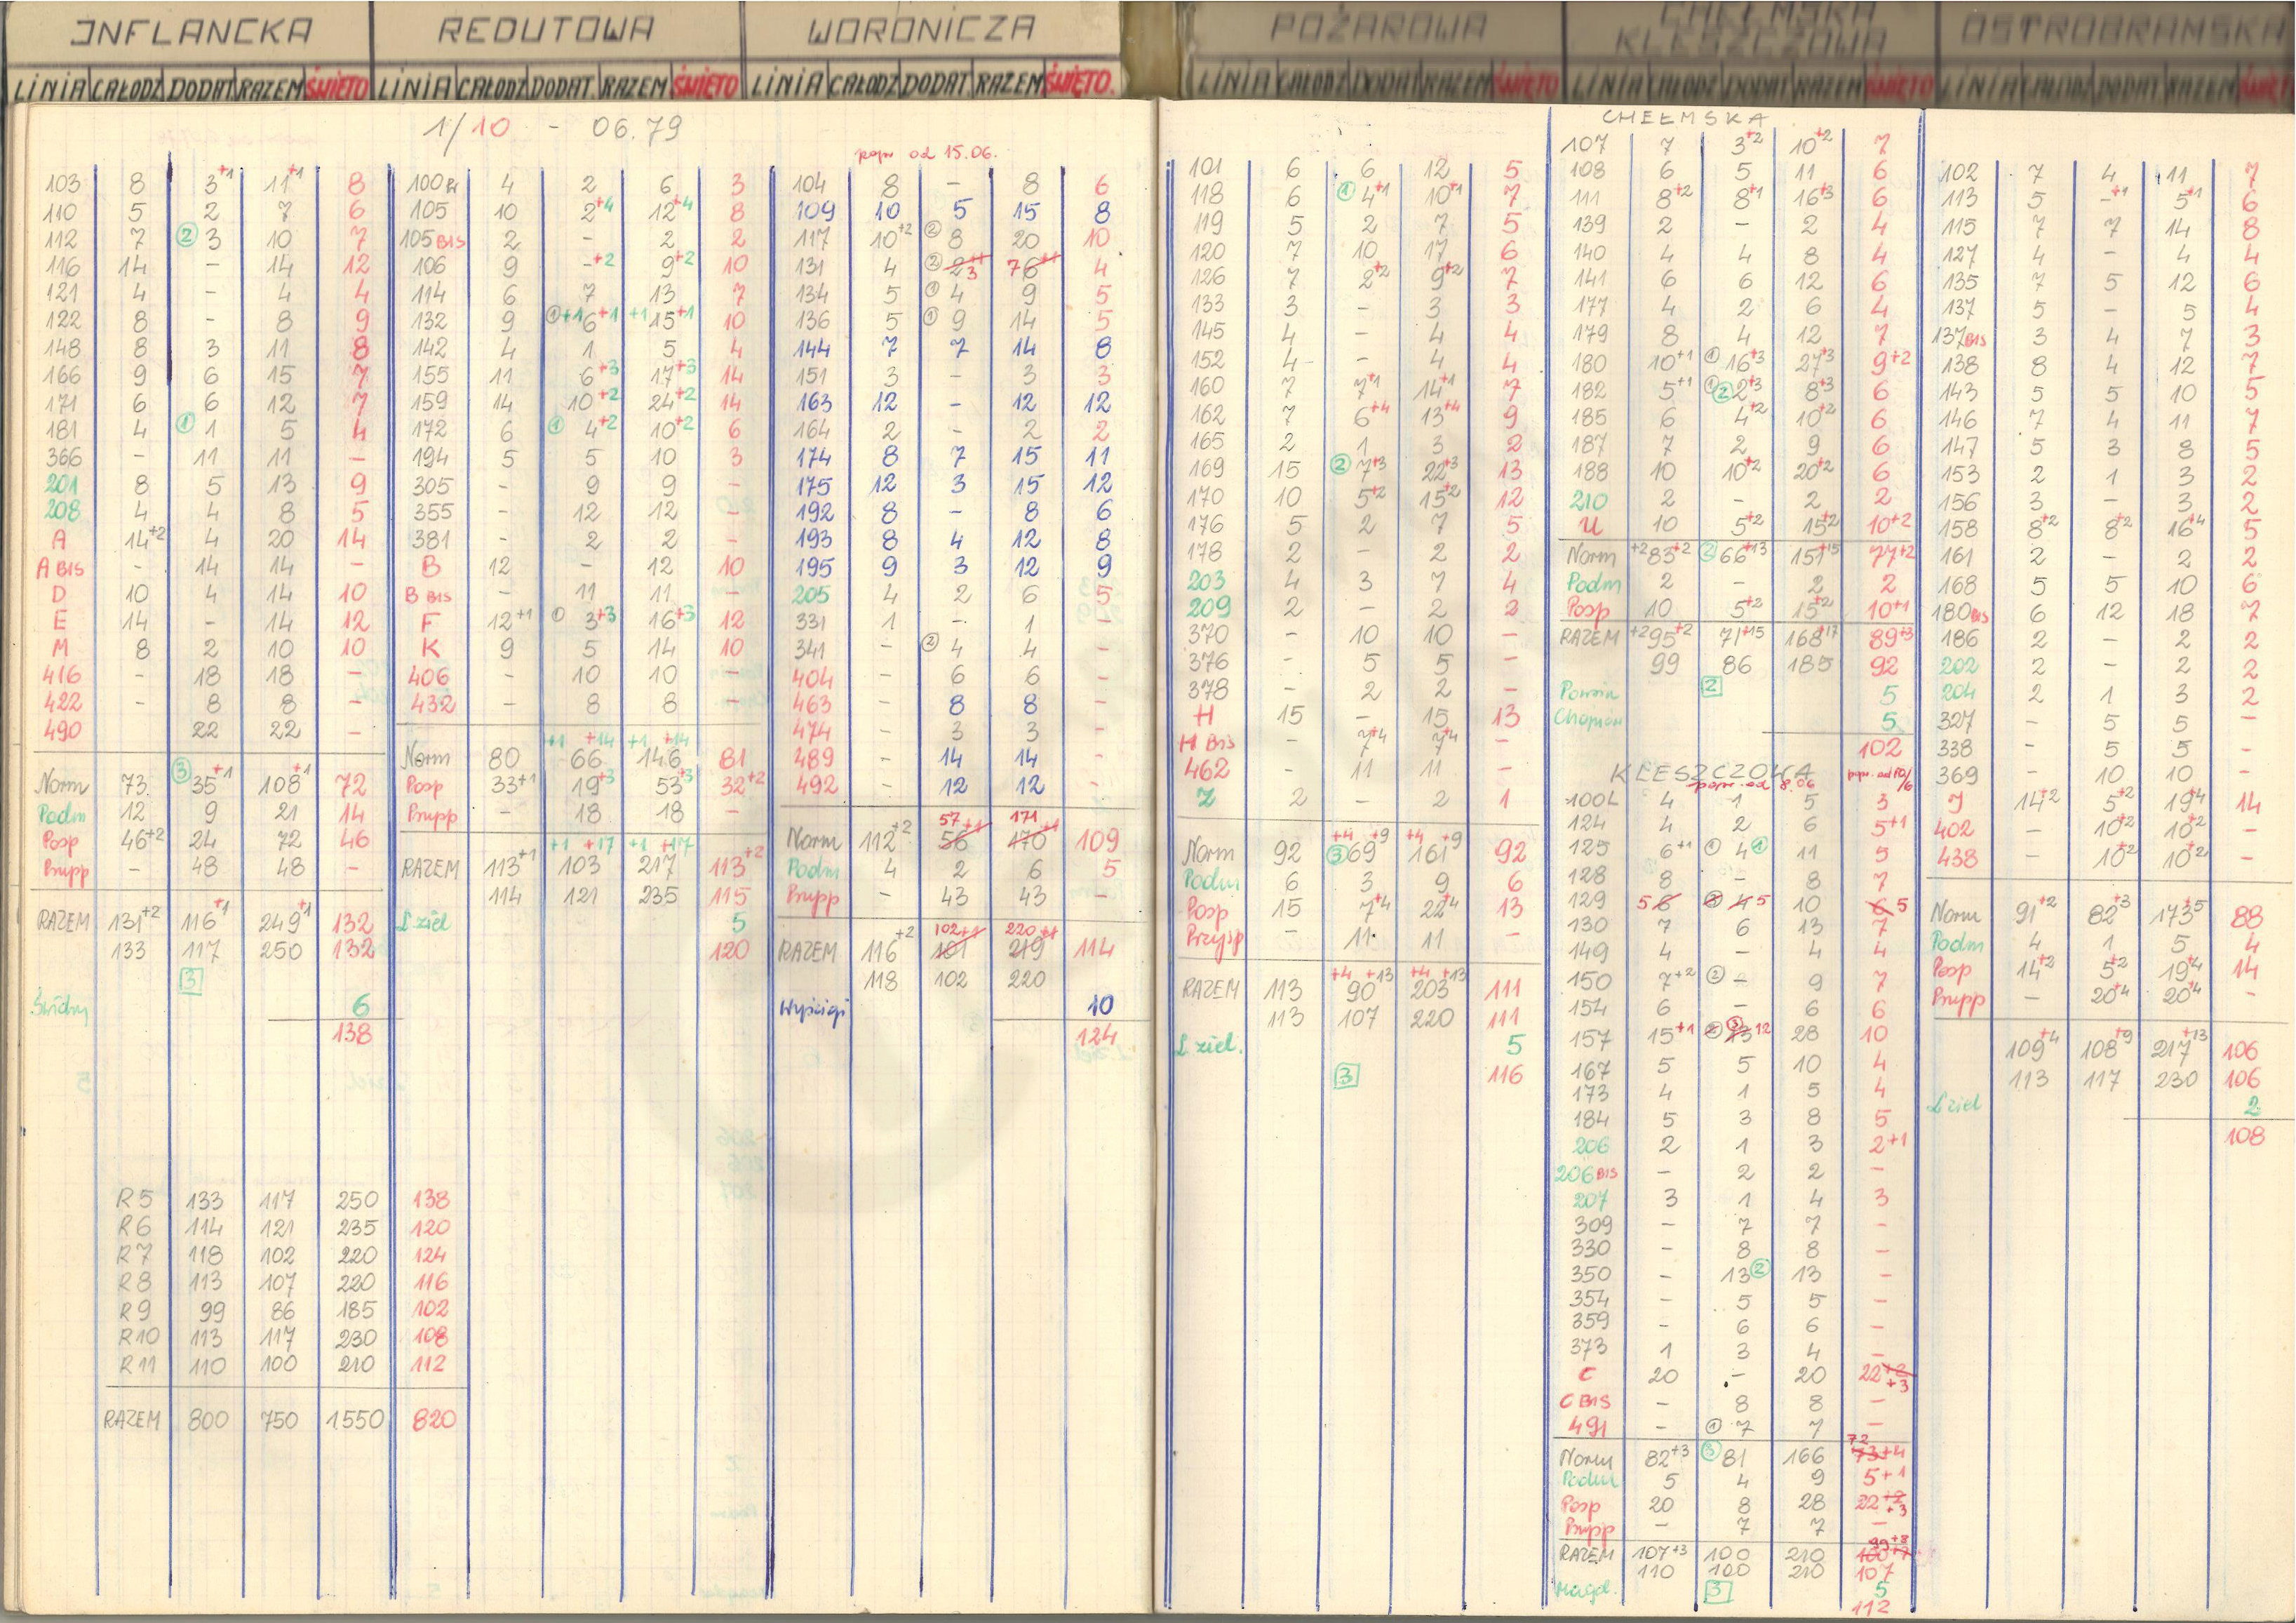 INFLANCKA
LINIA CAŁODZ DODAT RAZEM ŚWIĘTO
1/10 - 06.79
103 8 3+1 11+1 8
110 5 2 7 6
112 7 ② 3 10 7
116 14 - 14 12
121 4 - 4 4
122 8 - 8 9
148 8 3 11 8
166 9 6 15 7
171 6 6 12 7
181 4 ① 1 5 4
366 - 11 11 -
201 8 5 13 9
208 4 4 8 5
A 14+2 4 20 14
A BIS - 14 14 -
D 10 4 14 10
E 14 - 14 12
M 8 2 10 10
416 - 18 18 -
422 - 8 8 -
490 22 22 -
Norm 73 ③ 35+1 108+1 72
Podm 12 9 21 14
Posp 46+2 24 72 46
Pupp - 48 48 -
RAZEM 131+2 116+1 249+1 132
133 117 250 132
3
6
138
R5 133 117 250 138
R6 114 121 235 120
R7 118 102 220 124
R8 113 107 220 116
R9 99 86 185 102
R10 113 117 230 108
R11 110 100 210 112
RAZEM 800 750 1550 820
REDUTOWA
LINIA CAŁODZ DODAT. RAZEM ŚWIĘTO
100 4 2 6 3
105 10 2+4 12+4 8
105 BIS 2 - 2 2
106 9 -+2 9+2 10
114 6 7 13 7
132 9 ①+1 6+1 +1 15+1 10
142 4 1 5 4
155 11 6+3 17+3 14
159 14 10+2 24+2 14
172 6 ① 4+2 10+2 6
194 5 5 10 3
305 - 9 9 -
355 - 12 12 -
381 - 2 2 -
B 12 - 12 10
B BIS - 11 11 -
F 12+1 ① 3+3 16+3 12
K 9 5 14 10
406 - 10 10 -
432 - 8 8 -
+1 +14 +1 +14
Norm 80 66 146 81
Posp 33+1 19+3 53+3 32+2
Pupp - 18 18 -
+1 +17 +1 +17
RAZEM 113+1 103 217 113+2
114 121 235 115
L ziel 5
120
WORONICZA
LINIA CAŁODZ DODAT. RAZEM ŚWIĘTO.
popr od 15.06.
104 8 - 8 6
109 10 5 15 8
117 10+2 ② 8 20 10
131 4 ② 2+1 3 7 6+1 4
134 5 ① 4 9 5
136 5 ① 9 14 5
144 7 7 14 8
151 3 - 3 3
163 12 - 12 12
164 2 - 2 2
174 8 7 15 11
175 12 3 15 12
192 8 - 8 6
193 8 4 12 8
195 9 3 12 9
205 4 2 6 5
331 1 - 1 -
341 - ② 4 4 -
404 - 6 6 -
463 - 8 8 -
474 - 3 3 -
489 - 14 14 -
492 - 12 12 -
57+1 171
Norm 112+2 56 170+1 109
Podm 4 2 6 5
Pupp - 43 43 -
102+1 220+1
RAZEM 116+2 101 219 114
118 102 220
Wyścigi 10
124
POŻAROWA
LINIA CAŁODZ DODAT RAZEM ŚWIĘTO
101 6 6 12 5
118 6 ① 4+1 10+1 7
119 5 2 7 5
120 7 10 17 6
126 7 2+2 9+2 7
133 3 - 3 3
145 4 - 4 4
152 4 - 4 4
160 7 7+1 14+1 7
162 7 6+4 13+4 9
165 2 1 3 2
169 15 ② 7+3 22+3 13
170 10 5+2 15+2 12
176 5 2 7 5
178 2 - 2 2
203 4 3 7 4
209 2 - 2 2
370 - 10 10 -
376 - 5 5 -
378 - 2 2 -
H 15 - 15 13
H BIS - 7+4 7+4 -
462 - 11 11 -
Z 2 - 2 1
+4 +9 +4 +9
Norm 92 ③ 69 161 92
Podm 6 3 9 6
Posp 15 7+4 22+4 13
Przysp - 11 11 -
+4 +13 +4 +13
RAZEM 113 90 203 111
113 107 220 111
L ziel. 5
3 116
CHEŁMSKA
KLESZCZOWA
LINIA CAŁODZ DODAT RAZEM ŚWIĘTO
CHEŁMSKA
107 7 3+2 10+2 7
108 6 5 11 6
111 8+2 8+1 16+3 6
139 2 - 2 4
140 4 4 8 4
141 6 6 12 6
177 4 2 6 4
179 8 4 12 7
180 10+1 ① 16+3 27+3 9+2
182 5+1 ① ② 2+3 8+3 6
185 6 4+2 10+2 6
187 7 2 9 6
188 10 10+2 20+2 6
210 2 - 2 2
U 10 5+2 15+2 10+2
Norm +2 83+2 ② 66+13 151+15 77+2
Podm 2 - 2 2
Posp 10 5+2 15+2 10+1
RAZEM +2 95+2 71+15 168+17 89+3
99 86 185 92
Powsin 2 5
5
102
KLESZCZOWA
popr. od 8.06 popr. od 10/6
100L 4 1 5 3
124 4 2 6 5+1
125 6+1 ① 4 ① 11 5
128 8 - 8 7
129 5 6 ② 4 5 10 6 5
130 7 6 13 7
149 4 - 4 4
150 7+2 ② - 9 7
154 6 - 6 6
157 15+1 2 ③ 13 12 28 10
167 5 5 10 4
173 4 1 5 4
184 5 3 8 5
206 2 1 3 2+1
206 BIS - 2 2 -
207 3 1 4 3
309 - 7 7 -
330 - 8 8 -
350 - 13 ② 13 -
354 - 5 5 -
359 - 6 6 -
373 1 3 4 -
C 20 - 20 22+2 +3
C BIS - 8 8 -
491 - ① 7 7 -
72
Norm 82+3 ③ 81 166 73+4
Podm 5 4 9 5+1
Posp 20 8 28 22+2 +3
Pupp - 7 7 -
99+8
RAZEM 107+3 100 210 100+7
110 100 210 107
Magd. 3 5
112
OSTROBRAMSKA
LINIA CAŁODZ DODAT RAZEM
102 7 4 11 7
113 5 -+1 5+1 6
115 7 7 14 8
127 4 - 4 4
135 7 5 12 6
137 5 - 5 4
137 BIS 3 4 7 3
138 8 4 12 7
143 5 5 10 5
146 7 4 11 7
147 5 3 8 5
153 2 1 3 2
156 3 - 3 2
158 8+2 8+2 16+4 5
161 2 - 2 2
168 5 5 10 6
180 BIS 6 12 18 7
186 2 - 2 2
202 2 - 2 2
204 2 1 3 2
327 - 5 5 -
338 - 5 5 -
369 - 10 10 -
J 14+2 5+2 19+4 14
402 - 10+2 10+2 -
438 - 10+2 10+2 -
Norm 91+2 82+3 173+5 88
Podm 4 1 5 4
Posp 14+2 5+2 19+4 14
Pupp - 20+4 20+4 -
109+4 108+9 217+13 106
113 117 230 106
L ziel 2
108